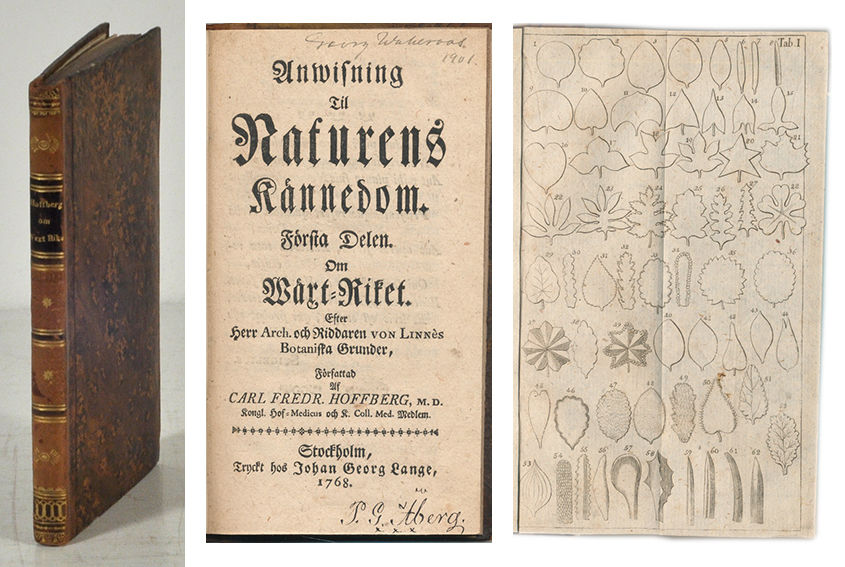 Hoffberg
om
Rike
Georg
1901.
Anwisning
Til
Naturens
Kännedom.
Första Delen.
Om
Wäxt-Riket.
Efter
Herr Arch. och Riddaren VON LINNès
Botaniska Grunder,
Författad
Af
CARL FREDR. HOFFBERG, M. D.
Kongl. Hof-Medicus och K. Coll. Med. Medlem.
Stockholm,
Tryckt hos Johan Georg Lange,
1768.
P. G. Åberg.
Tab. I
1 2 3 4 5 6 7 8
9 10 11 12 13 14 15
16 17 18 19 20 21
22 23 24 25 26 27 28
29 30 31 32 33 34 35 36
37 38 39 40 41 42 43 44
45 46 47 48 49 50 51
53 54 55 56 57 58 59 60 61 62